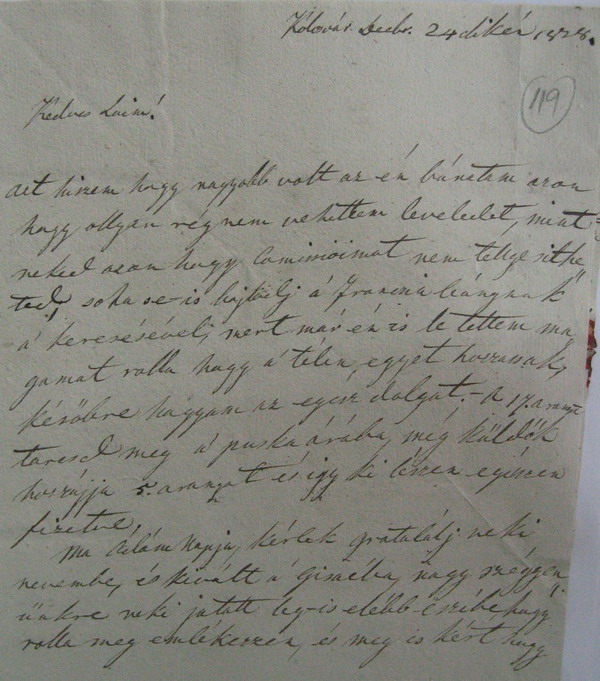 Kolosvár. Decbr. 24dikén 1828.
119
Kedves Laim!
azt hiszem hogy nagyobb volt az én bánatom azon
hogy ollyan rég nem vehettem leveledet, mint
neked azon hogy Comissióimat nem telly​esithe
ted, soha se-is bajlódj á Francia leánynak
á keresésével, mert már én is le tettem ma
gamat rolla hogy á télen, egyet hozassak,
későbre hagyom az egész dolgot. - a 17. aranyt
tartsd meg á puska árába, még küldök
hozzája 5. aranyat és így ki lészen egészen
fizetve.
Ma Ádám Napja, kérlek gratulálj neki
nevembe, és kivált á
nagy szégyen
ünkre neki jutatt leg-is elébb eszébe, hogy
rolla meg emlékezzen, és meg is kért hogy